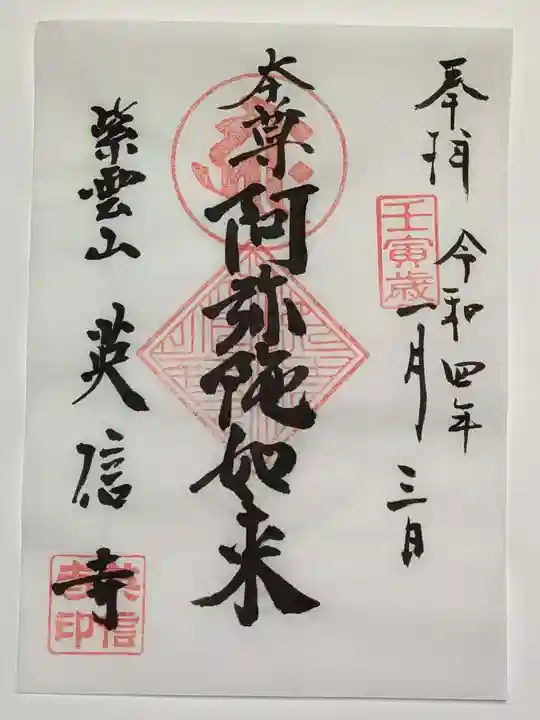 奉拝
令和四年
壬寅歳
一月三日
本尊阿弥陀如来
紫雲山英信寺
英信寺印